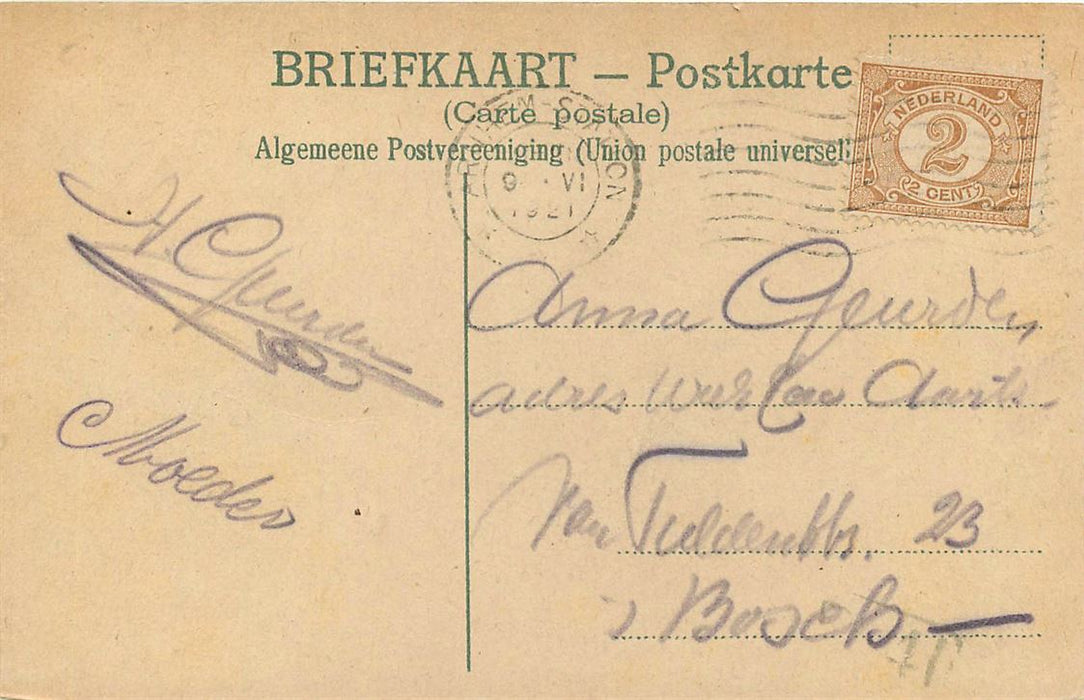 BRIEFKAART — Postkarte
(Carte postale)
Algemeene Postvereeniging (Union postale universell
NEDERLAND
2
2 CENT
9 VI
1921
H. Geurden
Moeder
Anna Geurden
adres Aarts
Van Tuldenstr. 23
s Bosch